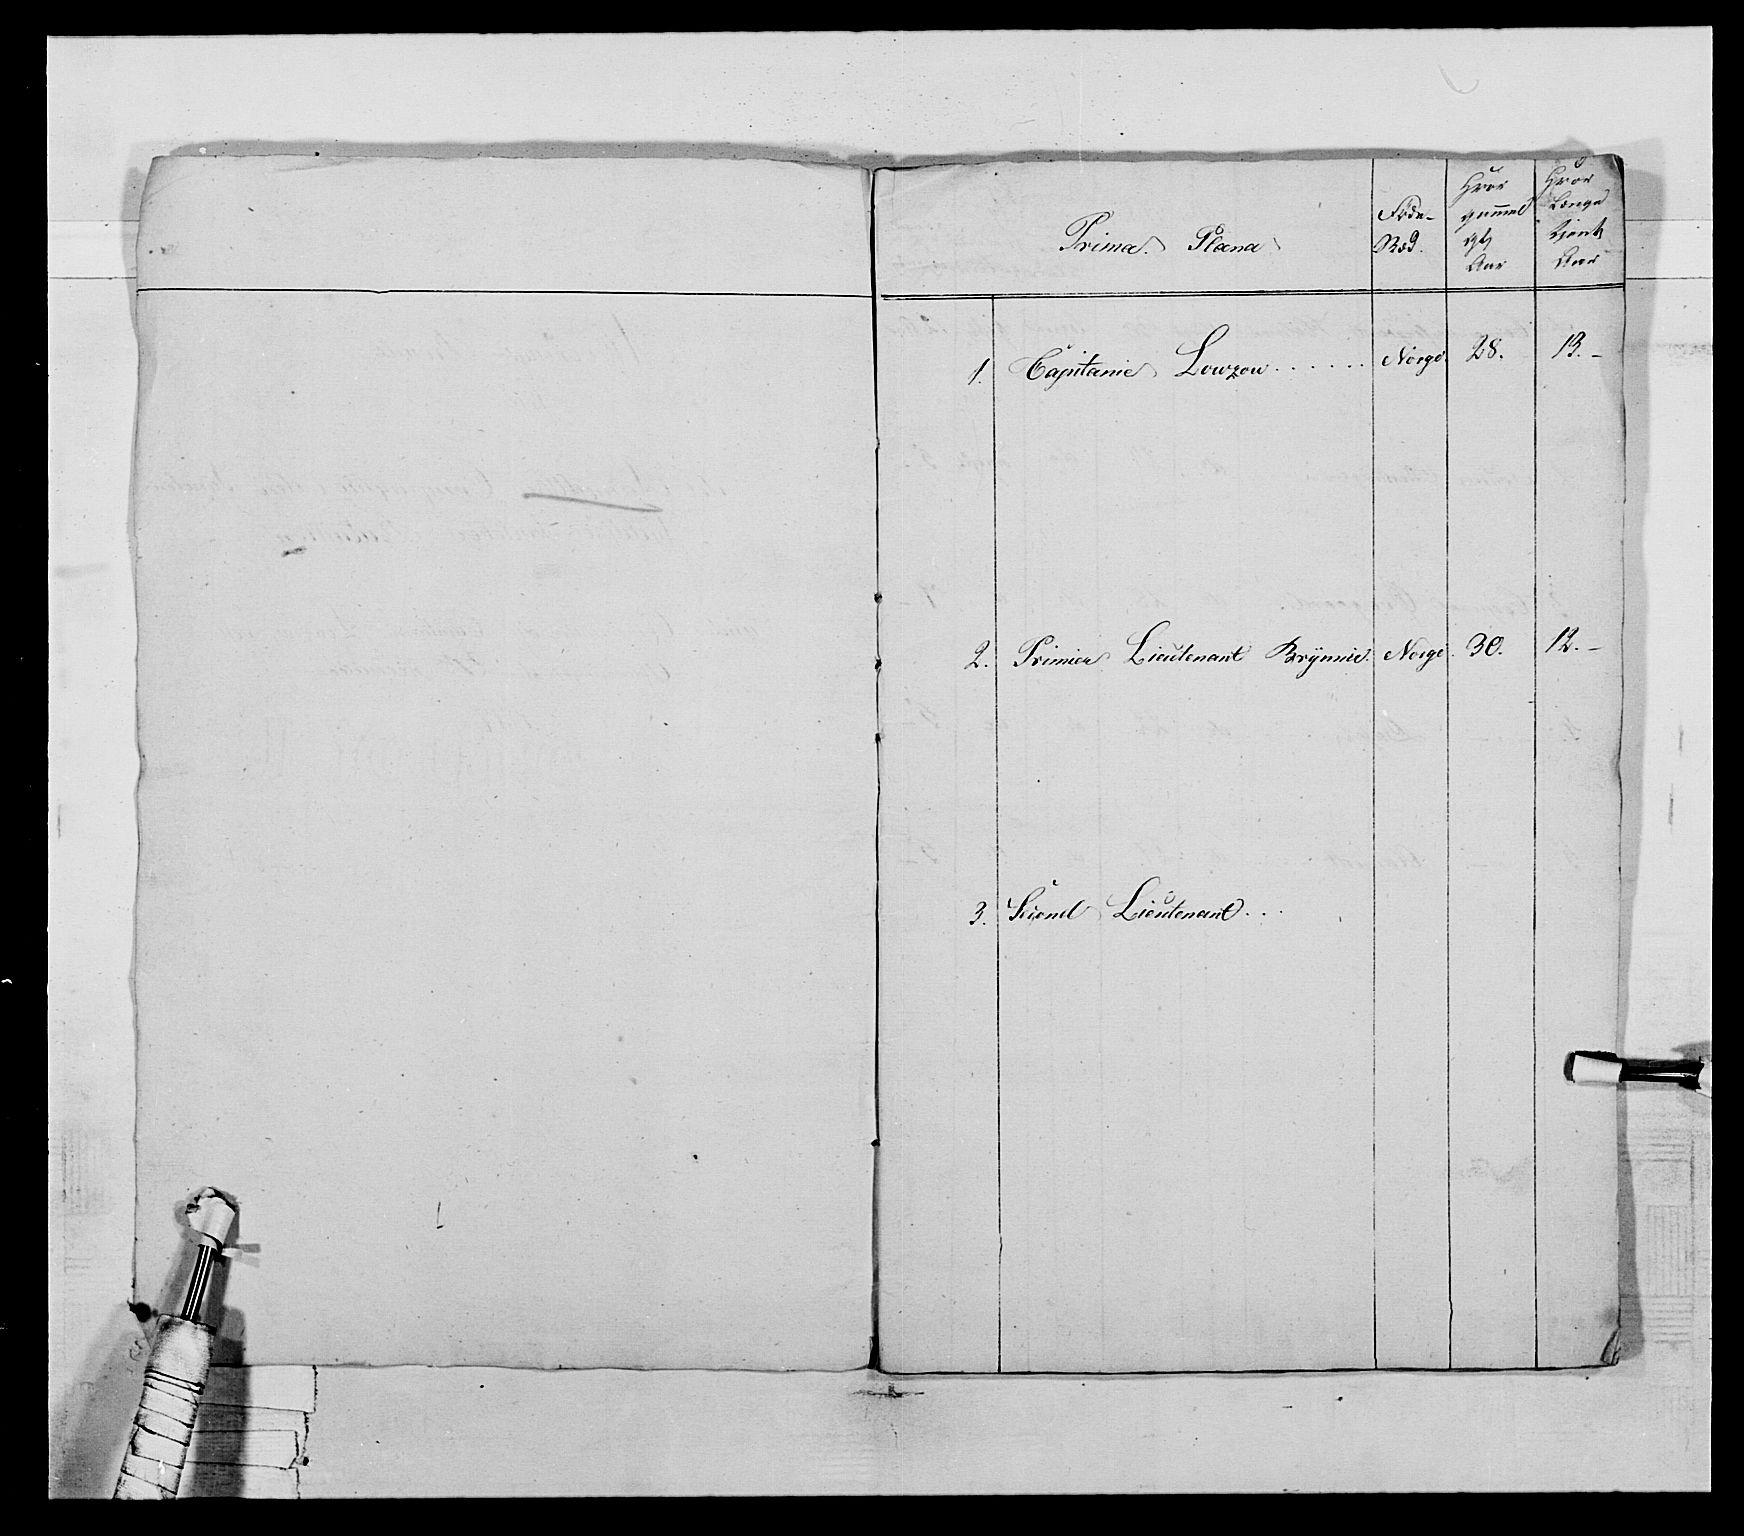 Prima Plana
Føde-
Stæd.
Hvor
gammel
Aar
Hvor
Længe
tjent
Aar
1. Capitaine Lowzow ...... Norge. 28. 13.-
2. Primier Lieutenant Brÿnnie. Norge. 30. 12.-
3. Second Lieutenant ...